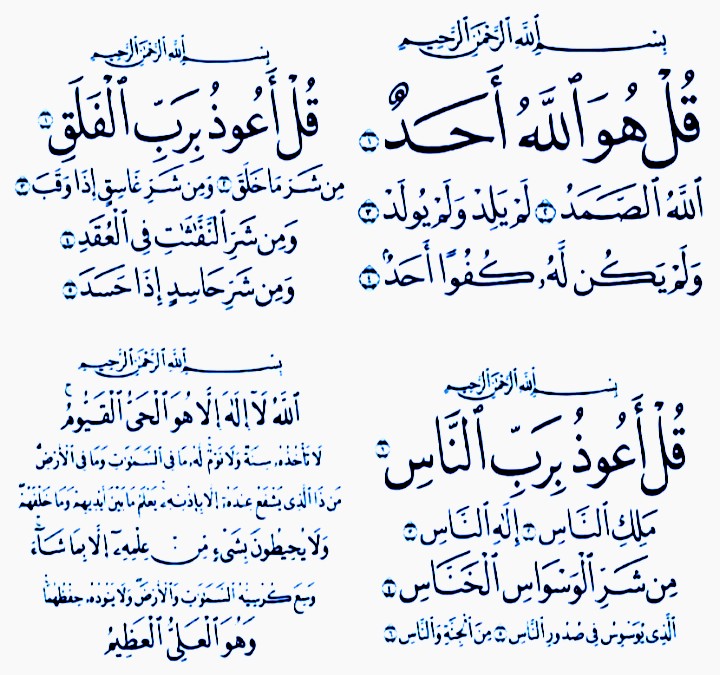 بِسْمِ اللَّهِ الرَّحْمَٰنِ الرَّحِيمِ
قُلْ هُوَ اللَّهُ أَحَدٌ ١
اللَّهُ الصَّمَدُ ٢ لَمْ يَلِدْ وَلَمْ يُولَدْ ٣
وَلَمْ يَكُن لَّهُ كُفُوًا أَحَدٌ ٤
بِسْمِ اللَّهِ الرَّحْمَٰنِ الرَّحِيمِ
قُلْ أَعُوذُ بِرَبِّ الْفَلَقِ ١
مِن شَرِّ مَا خَلَقَ ٢ وَمِن شَرِّ غَاسِقٍ إِذَا وَقَبَ ٣
وَمِن شَرِّ النَّفَّٰثَٰتِ فِي الْعُقَدِ ٤
وَمِن شَرِّ حَاسِدٍ إِذَا حَسَدَ ٥
بِسْمِ اللَّهِ الرَّحْمَٰنِ الرَّحِيمِ
قُلْ أَعُوذُ بِرَبِّ النَّاسِ ١
مَلِكِ النَّاسِ ٢ إِلَٰهِ النَّاسِ ٣
مِن شَرِّ الْوَسْوَاسِ الْخَنَّاسِ ٤
الَّذِي يُوَسْوِسُ فِي صُدُورِ النَّاسِ ٥ مِنَ الْجِنَّةِ وَالنَّاسِ ٦
بِسْمِ اللَّهِ الرَّحْمَٰنِ الرَّحِيمِ
اللَّهُ لَا إِلَٰهَ إِلَّا هُوَ الْحَيُّ الْقَيُّومُ
لَا تَأْخُذُهُ سِنَةٌ وَلَا نَوْمٌ لَّهُ مَا فِي السَّمَٰوَٰتِ وَمَا فِي الْأَرْضِ
مَن ذَا الَّذِي يَشْفَعُ عِندَهُ إِلَّا بِإِذْنِهِ يَعْلَمُ مَا بَيْنَ أَيْدِيهِمْ وَمَا خَلْفَهُمْ
وَلَا يُحِيطُونَ بِشَيْءٍ مِّنْ عِلْمِهِ إِلَّا بِمَا شَاءَ
وَسِعَ كُرْسِيُّهُ السَّمَٰوَٰتِ وَالْأَرْضَ وَلَا يَئُودُهُ حِفْظُهُمَا
وَهُوَ الْعَلِيُّ الْعَظِيمُ